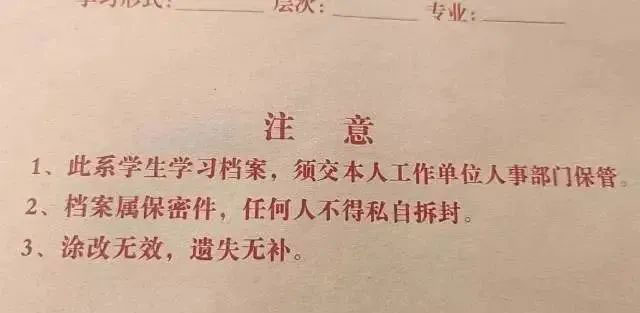 学习形式：________ 层次：________ 专业：________
注 意
1、此系学生学习档案，须交本人工作单位人事部门保管。
2、档案属保密件，任何人不得私自拆封。
3、涂改无效，遗失无补。